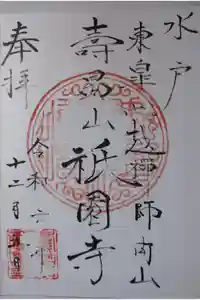 水戸
東皐心越禅師開山
壽昌山祇園寺
奉拝
令和六年
十二月